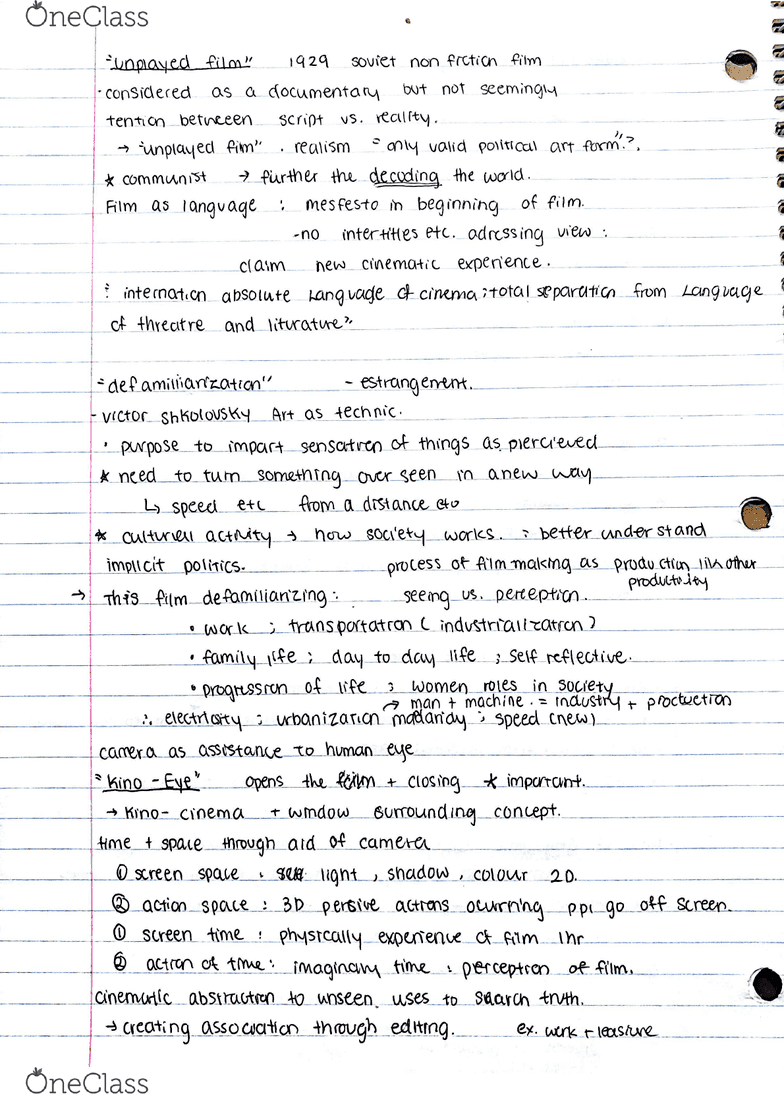 OneClass
"unplayed film" 1929 soviet non friction film
· considered as a documentary but not seemingly
tention between script vs. reality.
→ "unplayed fim" . realism = only valid political art form"?.
* communist → further the decoding the world.
Film as language : mesfesto in beginning of film.
-no intertitles etc. adressing view :
claim new cinematic experience.
: internation absolute Language of cinema ; total separation from Language
of threatre and liturature"
"defamilliarization" - estrangement.
- victor shkolovsky Art as technic.
· purpose to impart sensatiren of things as piercieved
* need to turn something over seen in a new way
↳ speed etc from a distance etc
* culturell activity → how society works. : better under stand
implicit politics. process of film making as production lik other
productivity
→ This film defamilianizing : seeing vs. perception.
• work ; transportation ( industrialization )
• family life ; day to day life ; self reflective.
• progression of life ; women roles in society
→ man + machine . = industry + proctuection
∴ electricity ; urbanization ; speed (new)
camera as assistance to human eye
"Kino - Eye" opens the film + closing * important.
→ Kino - cinema + window surrounding concept.
time + space through aid of camera
① screen space : light , shadow , colour 2D.
② action space : 3D persive actions ocurring ppl go off screen.
① screen time : physically experience of film 1hr
② action of time : imaginary time : perception of film.
cinematic abstraction to unseen. uses to search truth.
→ creating association through editing. ex. work + leasiure
OneClass